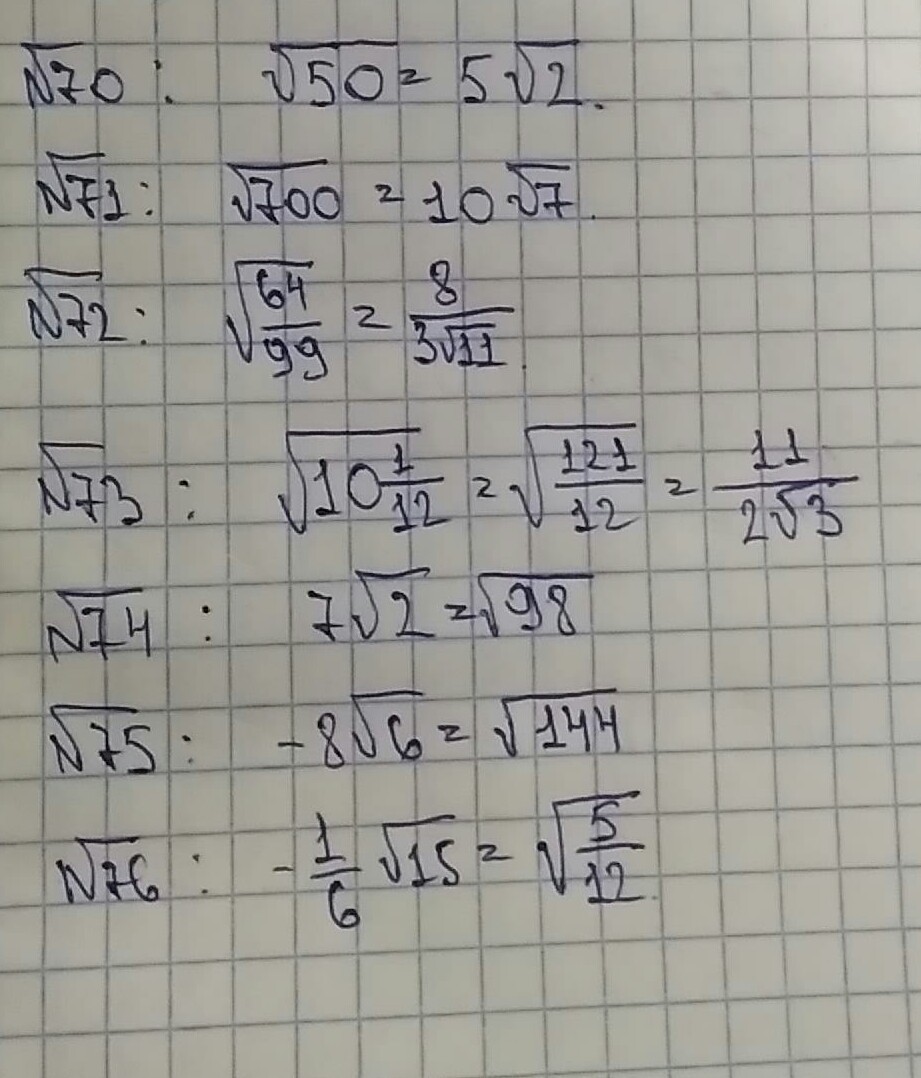 √70 : √50 = 5√2.
√71 : √700 = 10√7.
√72 : √(64/99) = 8/(3√11)
√73 : √(10 1/12) = √(121/12) = 11/(2√3)
√74 : 7√2 = √98
√75 : -8√6 = √144
√76 : -1/6 √15 = √(5/12)